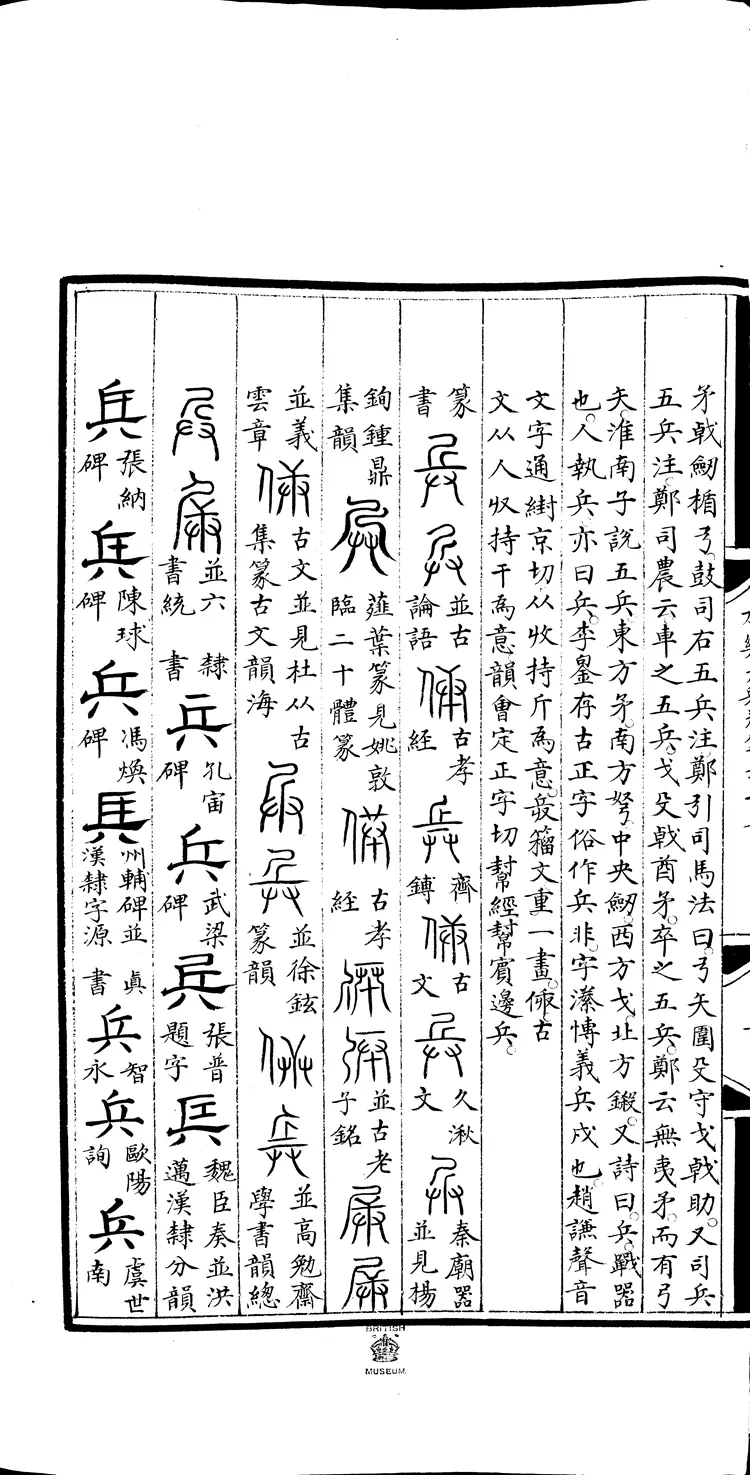 矛戟劒楯弓。鼓司右五兵注鄭引司馬法曰。弓矢圍殳守戈戟助。又司兵
五兵注。鄭司農云車之五兵。戈殳戟酋矛。卒之五兵。鄭云無夷矛。而有弓
矢。淮南子說五兵。東方矛。南方弩。中央劒。西方戈。北方鎩。又詩曰。兵。戰器
也。人執兵。亦曰兵。李鋆存古正字俗作兵非。字潫博義兵戍也。趙謙聲音
文字通。𡬶京切。从收持斤爲意。籀文重一畫。古
文从人収持干爲意。韻會定正字切幫經。幫賓邊兵。
篆書
並古論語
古孝經
齊鎛
古文
久湫文
秦廟器並見楊
鉤鍾鼎集韻
薤葉篆見姚敦臨二十體篆
古孝經
並古老子銘
並義雲章
古文並見杜从古集篆古文韻海
並徐鉉篆韻
並高勉齋學書韻總
並六書統
隸書
兵
孔宙碑
兵
武梁碑
兵
張普題字
兵
魏臣奏並洪邁漢隸分韻
兵
張納碑
兵
陳球碑
兵
馮煥碑
兵
州輔碑並漢隸字源
眞書
兵
智永
兵
歐陽詢
兵
虞世南
BRITISH
MUSEUM